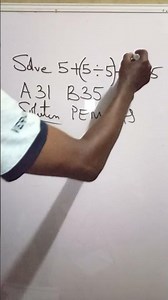 Solve 5+(5÷5)
A 31 B 35
Solution PEM